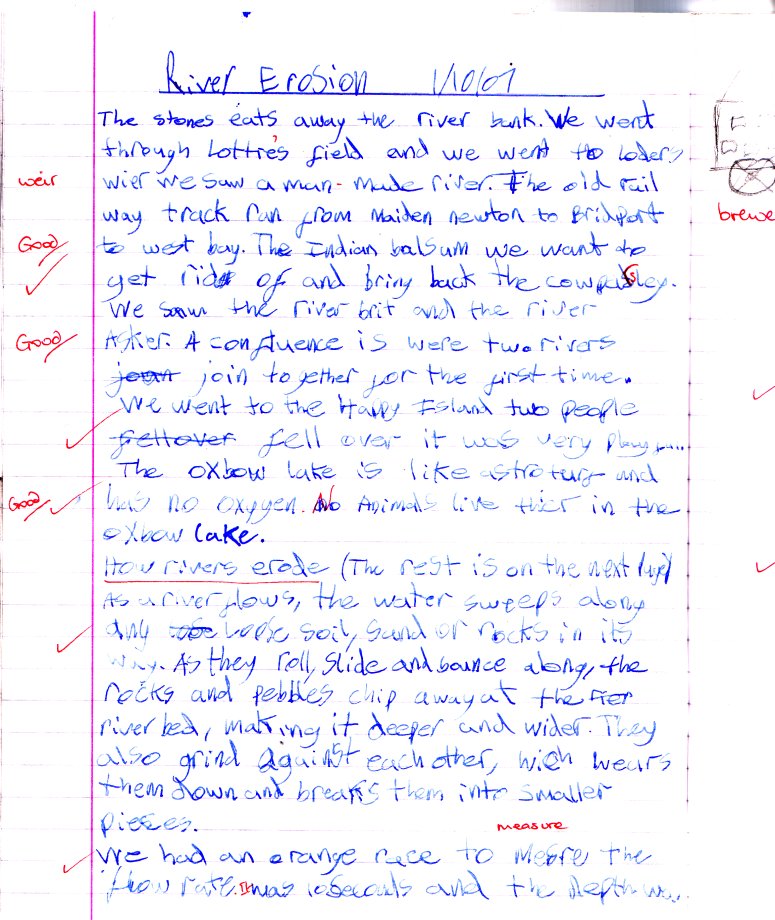 River Erosion 1/10/07
The stones eats away the river bank. We went
through Lottie's field and we went to loders
weir
wier we saw a man-made river. The old rail
way track run from Maiden newton to Bridport
brewe
Good
to west bay. The Indian balsum we want to
get rid of and bring back the
We saw the river brit and the river
Good
Asker. A confluence is were two rivers
join together for the first time.
We went to the Happy Island two people
fell over it was very
The oxbow lake is like astroturf and
Good
has no oxygen. No Animals live thier in the
oxbow lake.
How rivers erode (The rest is on the next page)
As a river flows, the water sweeps along
any loose soil, sand or rocks in its
way. As they roll, slide and bounce along, the
rocks and pebbles chip away at the
river bed, making it deeper and wider. They
also grind against each other, wich wears
them down and breaks them into smaller
pieces.
measure
We had an orange race to the
flow rate. It was 10 seconds and the depth